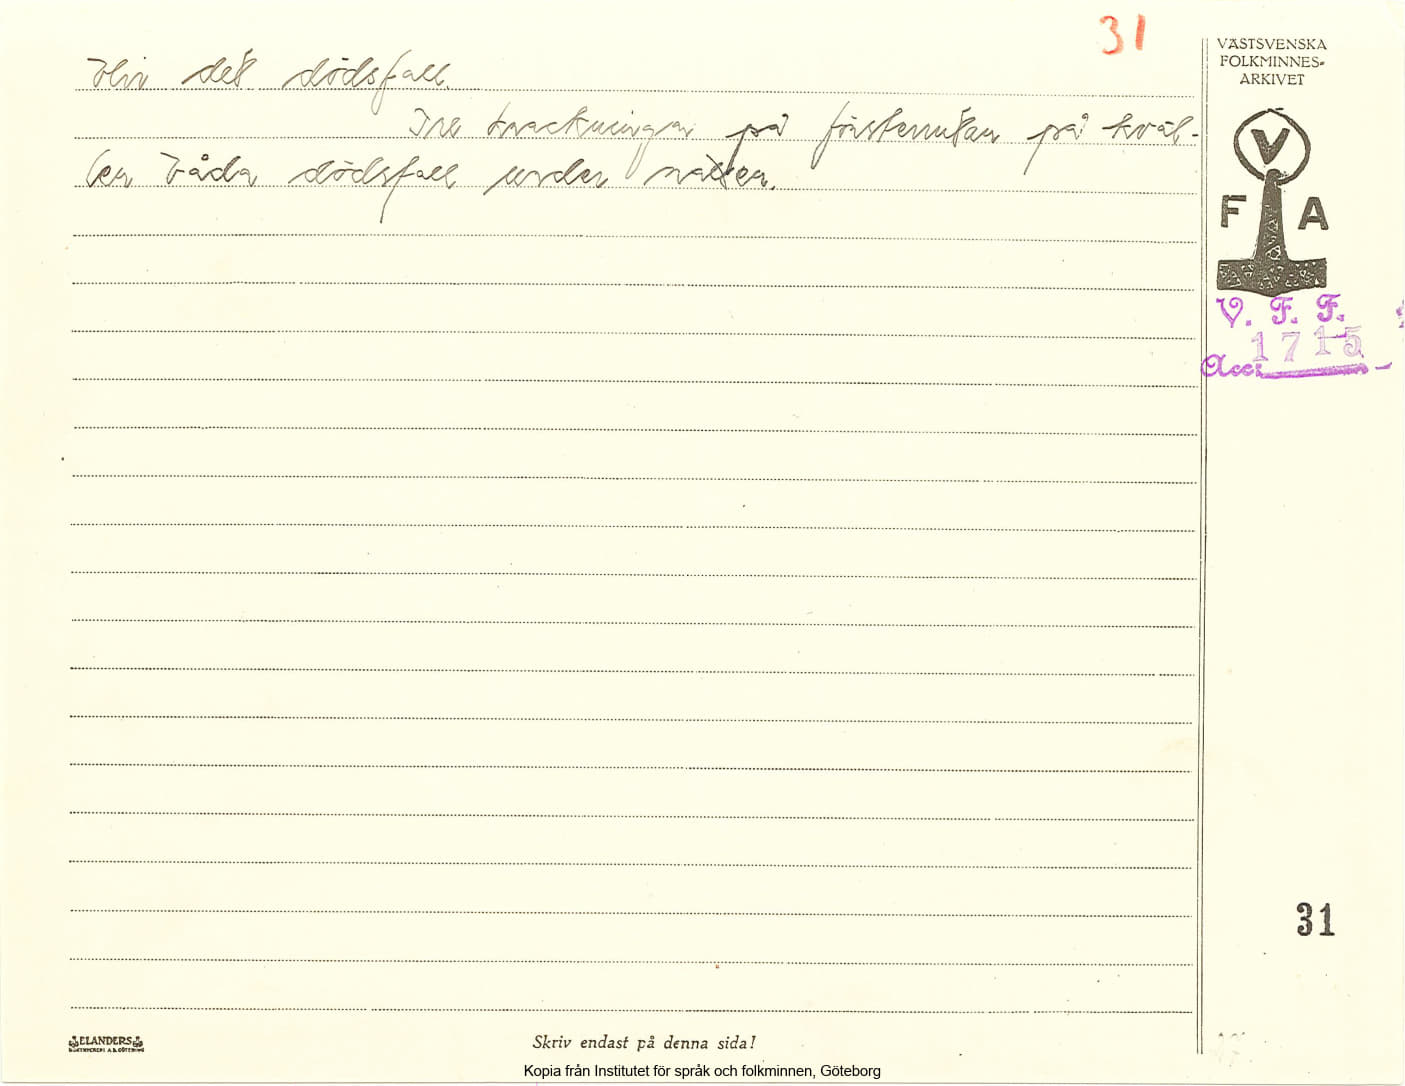 31
VÄSTSVENSKA
FOLKMINNES-
ARKIVET
V
F A
blir det dödsfall.
Tre knackningar på fönsterrutan på kväl-
len båda dödsfall under natten.
V. F. F.
Acc: 1715
31
ELANDERS
Skriv endast på denna sida!
Kopia från Institutet för språk och folkminnen, Göteborg